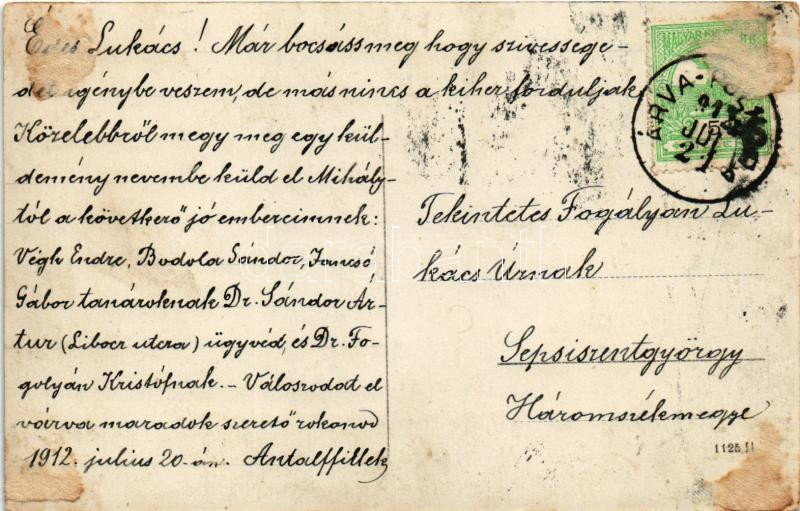 Édes Lukács! Már bocsáss meg hogy szivessege-
det igénybe veszem, de más nincs a kihez forduljak
Közelebbről megy meg egy kül-
demény nevembe küld el Mihály-
tól a következő jó embereimnek:
Végh Endre, Bodola Sándor, Jancsó
Gábor tanároknak Dr. Sándor Ar-
tur (Libocz utcza) ügyvéd, és Dr. Fo-
golyán Kristófnak. - Válaszodat el
várva maradok szerető rokonod
1912. július 20-án.
Tekintetes Fogályan Lu-
kács Úrnak
Sepsiszentgyörgy
Háromszékmegye
ÁRVA-
21
1125 II
darabanth